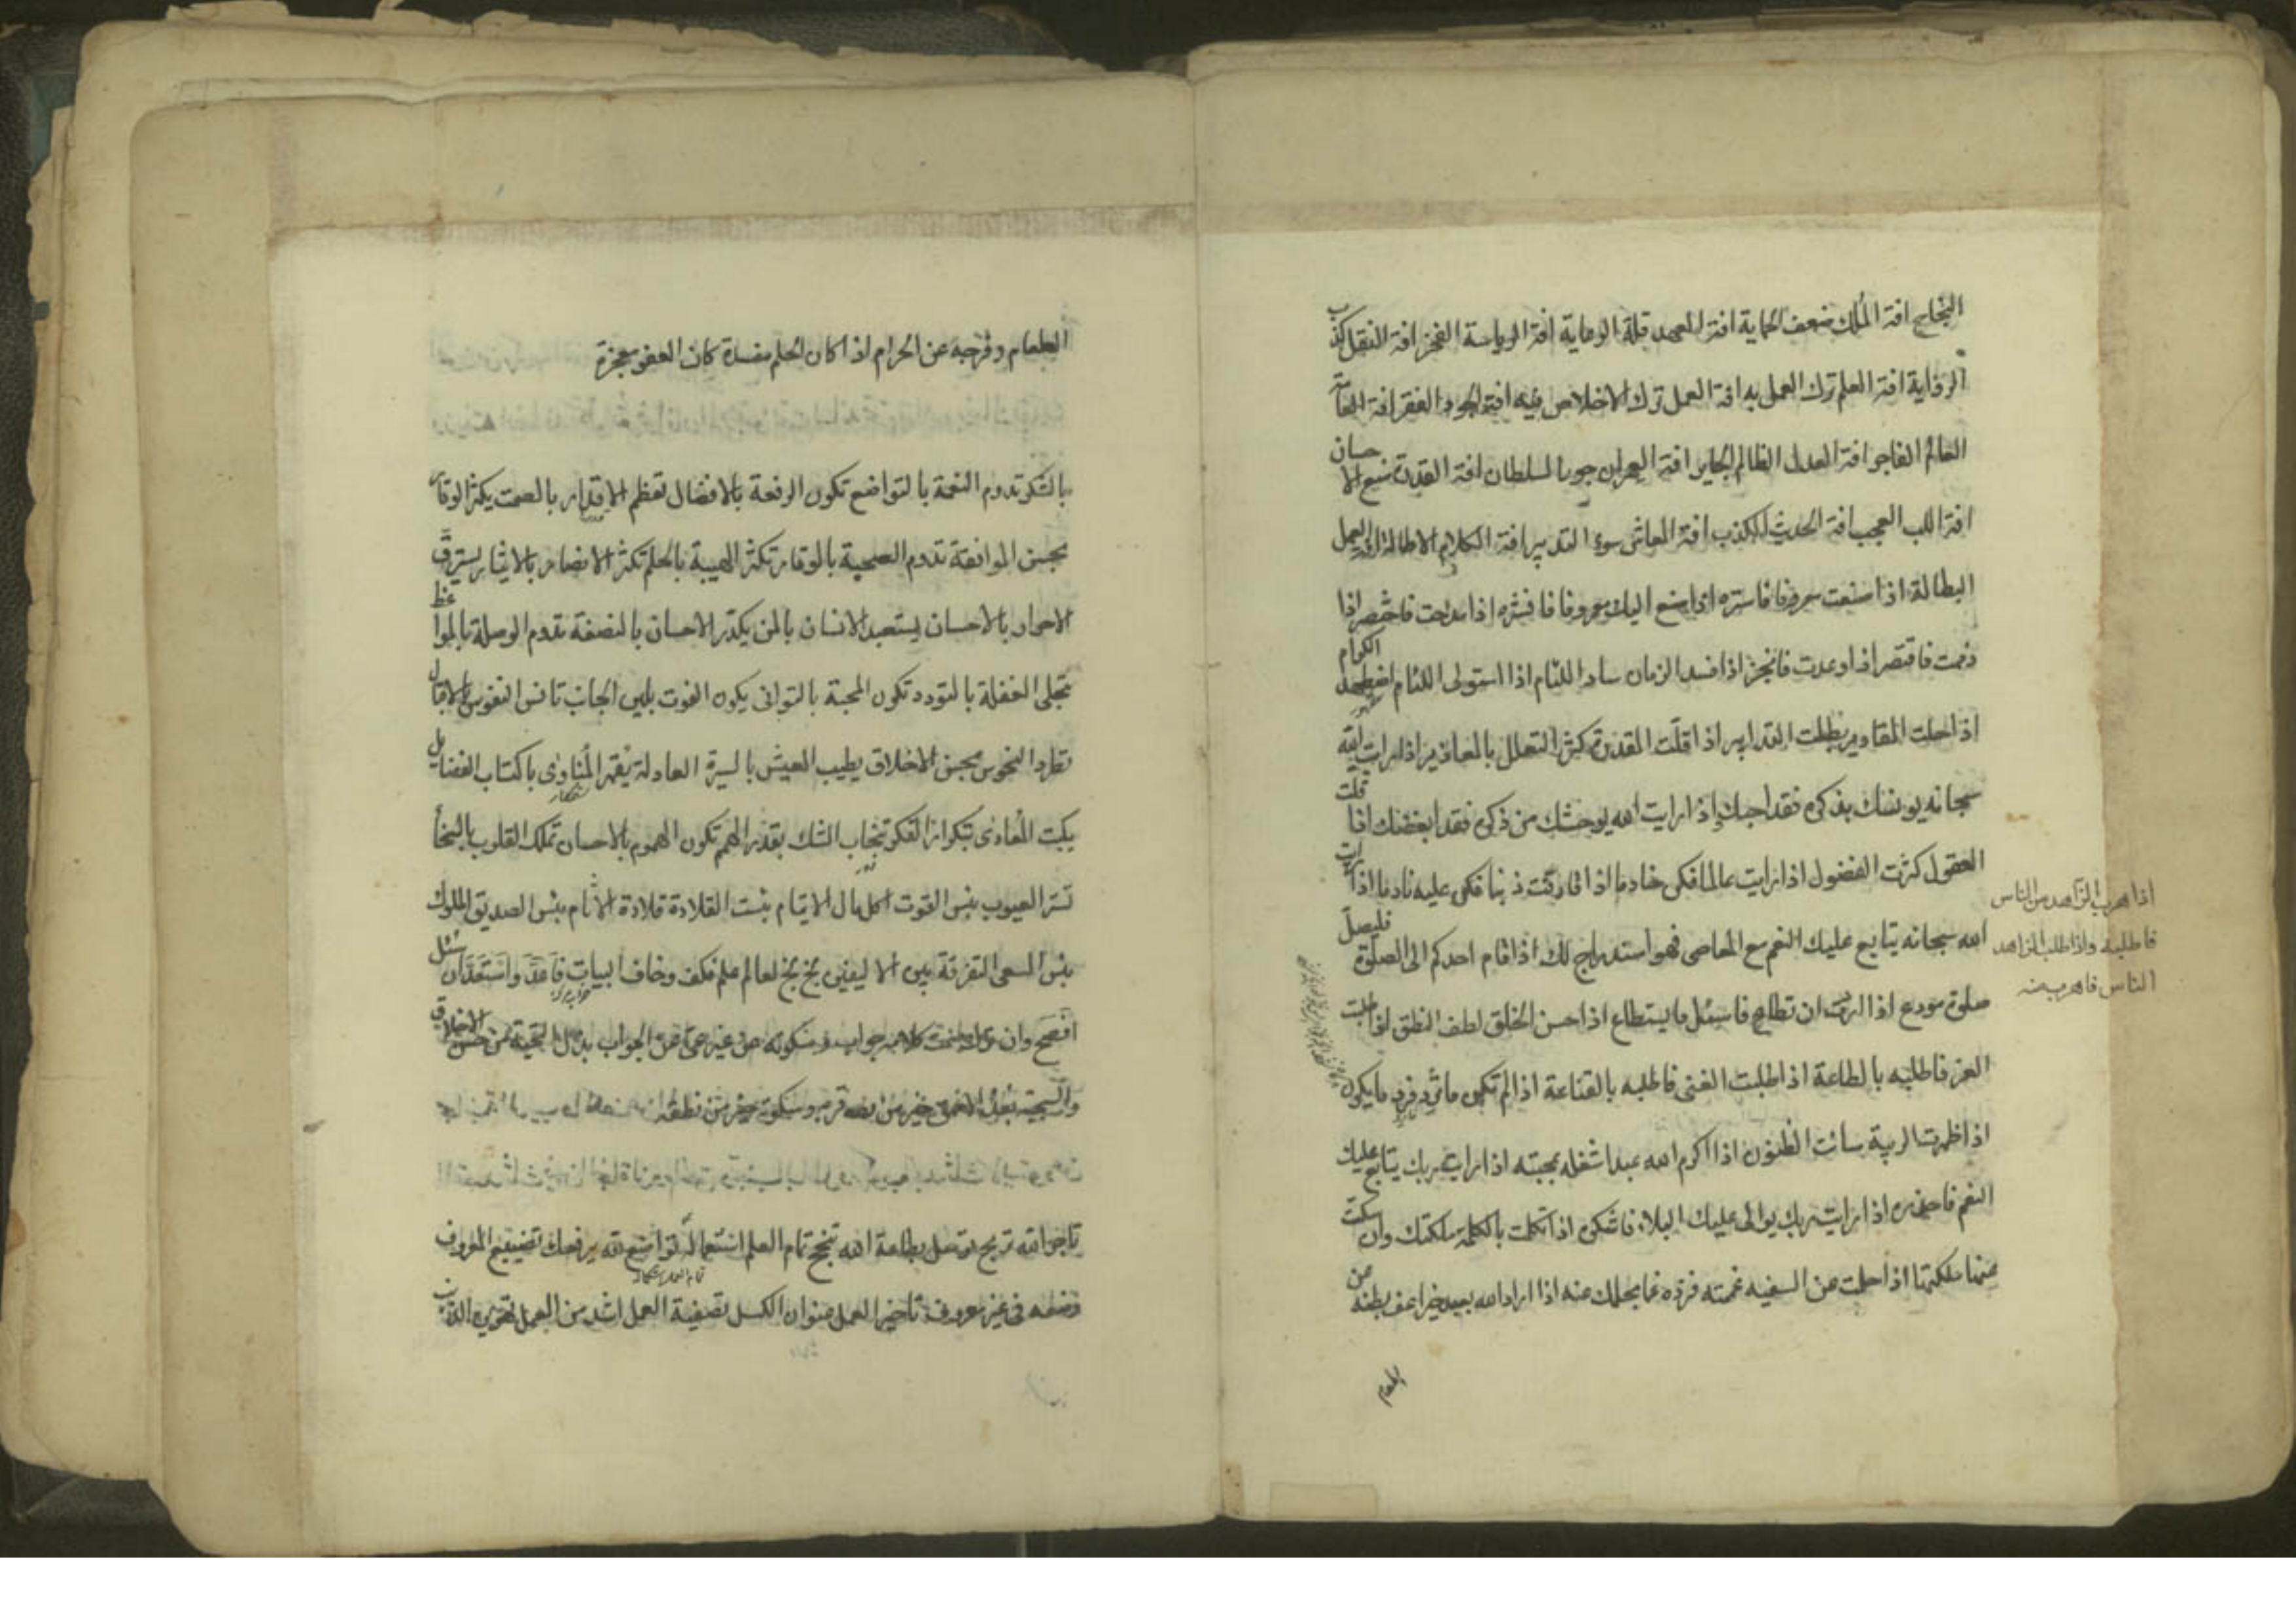 النجاح افة الملك ضعف الحماية افة العهد قلة الرعاية افة الرياسة الفخر افة النقل كذب
الرواية افة العلم ترك العمل به افة العمل ترك الاخلاص فيه افة الجود الفقر افة العامة
العالم الفاجر افة العدل الظالم الجاير افة العمران جور السلطان افة القدرة منع الاحسان
افة اللب العجب افة الحديث الكذب افة المعاش سوء التدبير افة الكلام الاطالة افة العمل
البطالة اذا صنعت معروفا فاستره اذا صنع اليك معروفا فانشره اذا مدحت فاختصر اذا
ذممت فاقتصر اذا وعدت فانجز اذا فسد الزمان ساد اللئام اذا استولى اللئام اضطهد الكرام
اذا حلت المقادير بطلت التدابير اذا قلت المقدرة كثر التعلل بالمعاذير اذا رايت الله
سبحانه يونسك بذكره فقد احبك اذا رايت الله يوحشك من ذكره فقد ابغضك اذا قلت
العقول كثرت الفضول اذا رايت عالما فكن خادما اذا قارفت ذنبا فكن عليه نادما اذا رايت
الله سبحانه يتابع عليك النعم مع المعاصى فهو استدراج لك اذا قام احدكم الى الصلوة فليصل
صلوة مودع اذا اردت ان تطاع فاسئل ما يستطاع اذا حسن الخلق لطف النطق اذا طلبت
العز فاطلبه بالطاعة اذا طلبت الغنى فاطلبه بالقناعة اذا لم تكن ما تريد فرد ما يكون
اذا ظهرت الريبة سائت الظنون اذا اكرم الله عبدا شغله بمحبته اذا رايت ربك يتابع عليك
النعم فاحذره اذا رايت ربك يوالى عليك البلاء فاشكره اذا تكلمت بالكلمة ملكتك وان سكت
عنها ملكتها اذا حلمت عن السفيه غممته فزده غما بحلمك عنه اذا اراد الله بعبد خيرا عف بطنه عن
الطعام
اذا هرب الزاهد من الناس
فاطلبه واذا طلب الزاهد
الناس فاهرب منه
الطعام وفرجه عن الحرام اذا كان الحلم مفسدة كان العفو معجزة
بالشكر تدوم النعمة بالتواضع تكون الرفعة بالافضال تعظم الاقدار بالصمت يكثر الوقار
بحسن الموافقة تدوم الصحبة بالوقار تكثر الهيبة بالحلم تكثر الانصار بالايثار يسترق
الاحرار بالاحسان يستعبد الانسان بالمن يكدر الاحسان بالنصفة تدوم الوصلة بالمواعظ
تجلى الغفلة بالتودد تكون المحبة بالتوانى يكون الفوت بلين الجانب تانس النفوس بالاقبال
تطرد النحوس بحسن الاخلاق يطيب العيش بالسيرة العادلة يقهر المناوى باكتساب الفضايل
يكبت المعادى بتكرار الفكر تنجاب الشك بقدر الهمم تكون الهموم بالاحسان تملك القلوب بالسخاء
تستر العيوب بئس القوت اكل مال الايتام بئست القلادة قلادة الاثام بئس الصديق الملوك
بئس السعى التفرقة بين الاليفين بخ بخ لعالم علم فكف وخاف البيات فاعد واستعد ان سئل
افصح وان ترك صمت كلامه جواب وسكوته من غير عى عن الجواب بذل التحية من حسن الاخلاق
والسجية بعد الاحمق خير من قربه وسكوته خير من نطقه
تاجر الله تربح توسل بطاعة الله تنجح تمام العلم استعماله تواضع لله يرفعك تضييع المعروف
وضعه فى غير معروف تاخير العمل عنوان الكسل تصفية العمل اشد من العمل